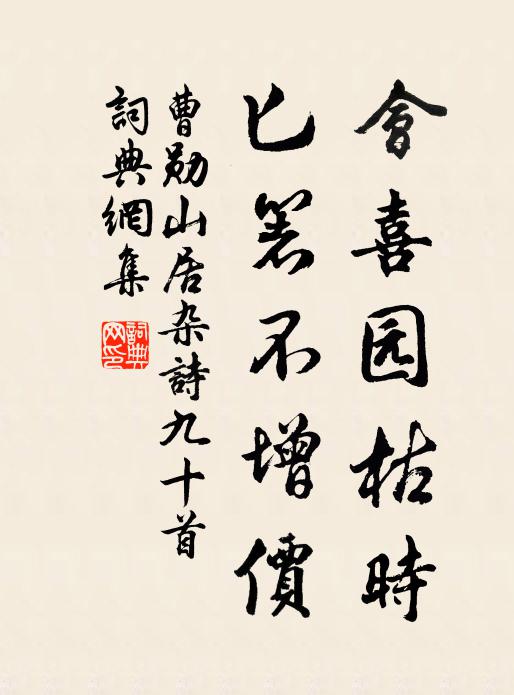 會喜园枯時
已箸不增價
曹勛山居杂詩九十首
詞典網集
詞典网印